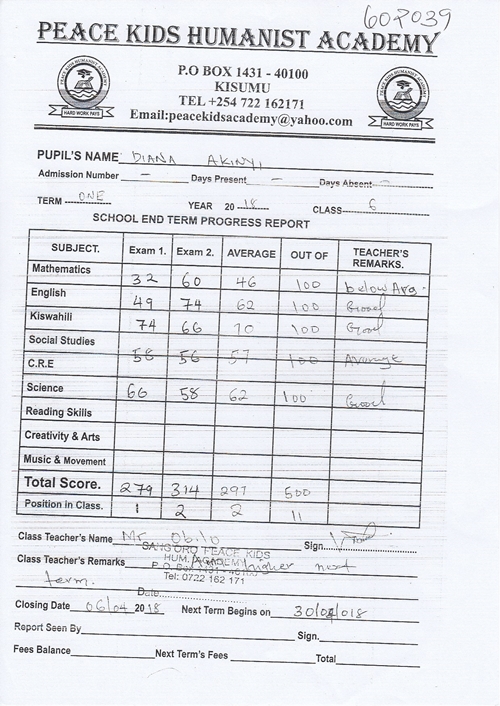 602039
PEACE KIDS HUMANIST ACADEMY
P.O BOX 1431 - 40100
KISUMU
TEL +254 722 162171
Email:peacekidsacademy@yahoo.com
PEACE KIDS HUMANIST ACADEMY
HARD WORK PAYS
PEACE KIDS HUMANIST ACADEMY
HARD WORK PAYS
PUPIL'S NAME DIANA AKINYI
Admission Number - Days Present - Days Absent -
TERM ONE YEAR 20 18 CLASS 6
SCHOOL END TERM PROGRESS REPORT
SUBJECT. Exam 1. Exam 2. AVERAGE OUT OF TEACHER'S REMARKS.
Mathematics 32 60 46 100 below Avg.
English 49 74 62 100 Good
Kiswahili 74 66 70 100 Good
Social Studies
C.R.E 58 56 57 100 Average
Science 66 58 62 100 Good
Reading Skills
Creativity & Arts
Music & Movement
Total Score. 279 314 297 500
Position in Class. 1 2 2 11
Class Teacher's Name Mr Obilo Sign.
SANG'ORO PEACE KIDS
Class Teacher's Remarks higher next
HUM. ACADEMY
P. O. Box 1431 - 40100
term.
Tel: 0722 162 171
Date
Closing Date 06/04 2018 Next Term Begins on 30/04/018
Report Seen By Sign.
Fees Balance Next Term's Fees Total